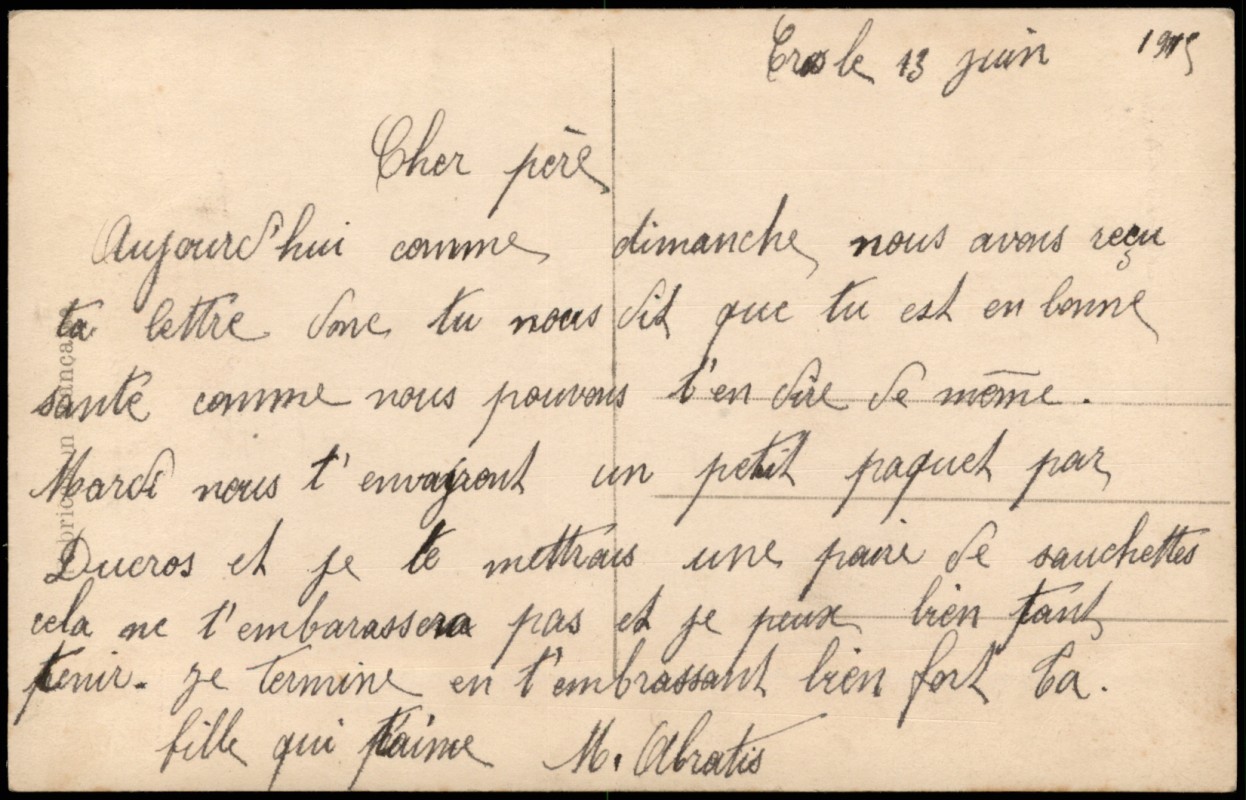 Cros le 13 juin 1915
Cher père
Aujourd'hui comme dimanche nous avons reçu
ta lettre donc tu nous dit que tu est en bonne
santé comme nous pouvons t'en dire de même.
Mardi nous t'envayront un petit paquet par
Ducros et je te mettrais une paire de sauchettes
cela ne t'embarassera pas et je peux bien t'ant
tenir. je termine en t'embrassant bien fort Ta.
fille qui t'aime M. Abratis